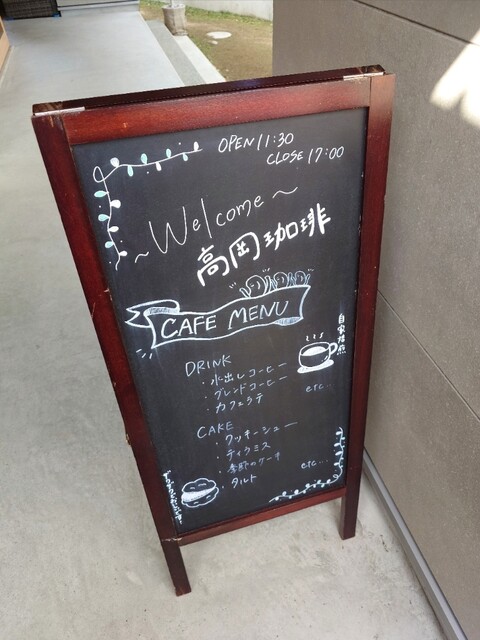 OPEN 11:30
CLOSE 17:00
~Welcome~
高岡珈琲
CAFE MENU
自家焙煎
DRINK
・水出しコーヒー
・ブレンドコーヒー
・カフェラテ
etc...
CAKE
・クッキーシュー
・ティラミス
・季節のケーキ
・タルト
etc...